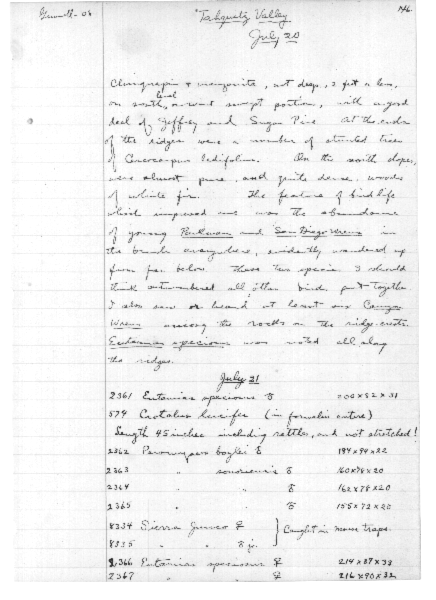 Grinnell-08
146.
Tahquitz Valley
July 20
Chinquapin & manzanita, not deep, 3 feet or less,
on south, level or west swept portion, with a good
deal of Jeffrey and Sugar Pine. At the ends
of the ridges were a number of stunted trees
of Cercocarpus ledifolius. On the north slopes,
were almost pure, and quite dense, woods
of white fir. The feature of bird life
which impressed me was the abundance
of young Parkman and San Diego Wrens in
the brush everywhere, evidently wandered up
from far below. These two species I should
think outnumbered all other birds put together.
I also saw or heard at least six Canyon
Wrens among the rocks on the ridge-crests.
Eutamias speciosus was noted all along
the ridges.
July 21
2361 Eutamias speciosus ♂ 200 x 82 x 31
579 Crotalus lucifer (in formalin entire)
Length 45 inches including rattles, and not stretched!
2362 Peromyscus boylei ♂ 194 x 94 x 22
2363 " sonoriensis ♂ 160 x 78 x 20
2364 " ♂ 162 x 78 x 20
2365 " ♂ 155 x 72 x 20
8334 Sierra Junco ♀ } Caught in mouse traps.
8335 " ♂ j.
2366 Eutamias speciosus ♀ 214 x 87 x 33
2367 " ♀ 216 x 90 x 32